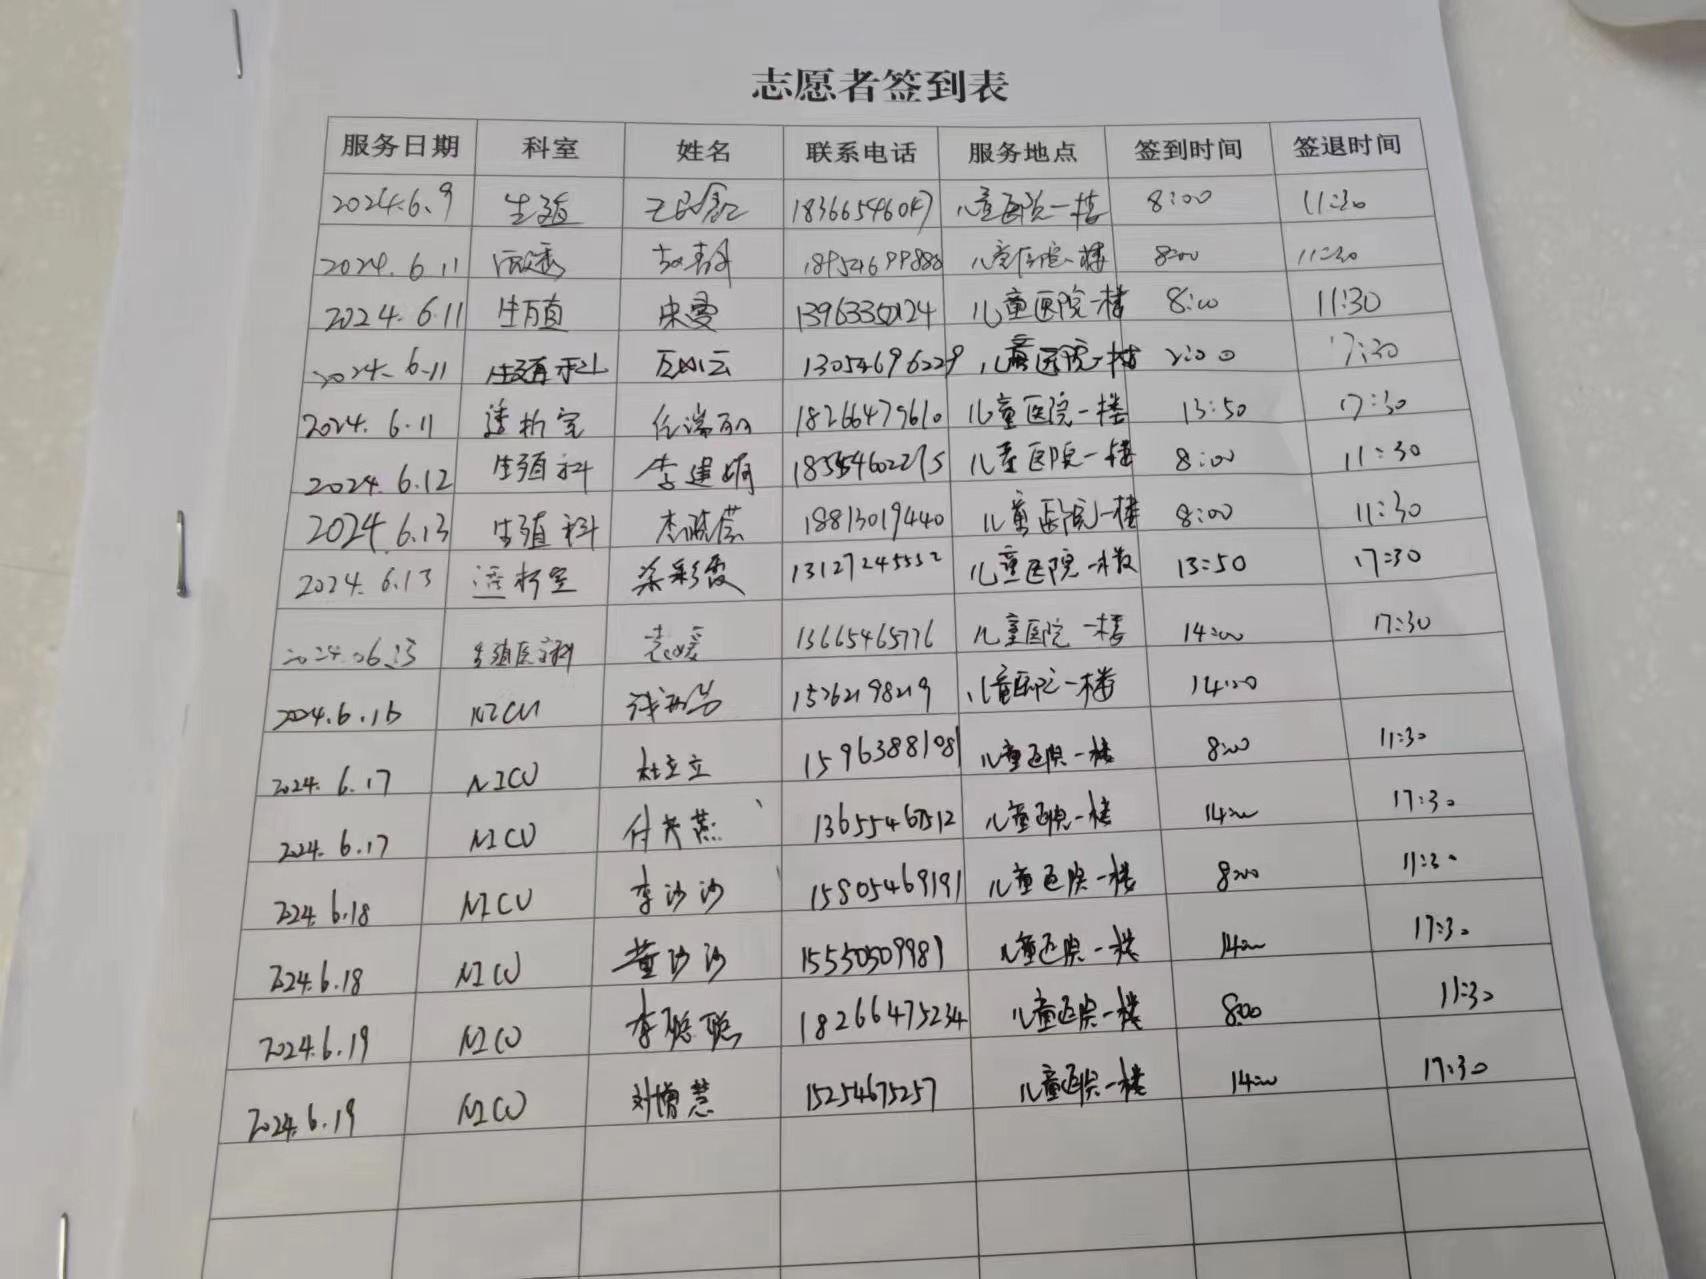 志愿者签到表
服务日期 科室 姓名 联系电话 服务地点 签到时间 签退时间
2024.6.9 生殖 18366546047 儿童医院一楼 8:00 11:30
2024.6.11 18954699880 儿童医院一楼 8:00 11:30
2024.6.11 生殖 宋曼 儿童医院一楼 8:00 11:30
2024.6.11 生殖科 13054696229 儿童医院一楼 2:00 17:30
2024.6.11 透析室 任瑞丽 18266479610 儿童医院一楼 13:50 17:30
2024.6.12 生殖科 李建娟 18554602275 儿童医院一楼 8:00 11:30
2024.6.13 生殖科 18813019440 儿童医院一楼 8:00 11:30
2024.6.13 透析室 13127245552 儿童医院一楼 13:50 17:30
2024.06.13 生殖医学科 袁媛 13665465776 儿童医院一楼 14:00 17:30
2024.6.16 NICU 15262198219 儿童医院一楼 14:00
2024.6.17 NICU 杜立立 15963881081 儿童医院一楼 8:00 11:30
2024.6.17 NICU 付芳燕 儿童医院一楼 14:00 17:30
2024.6.18 NICU 李沙沙 15805469191 儿童医院一楼 8:00 11:30
2024.6.18 NICU 董沙沙 15550509981 儿童医院一楼 14:00 17:30
2024.6.19 NICU 李聪聪 18266475234 儿童医院一楼 8:00 11:30
2024.6.19 NICU 刘增慧 15254675257 儿童医院一楼 14:00 17:30